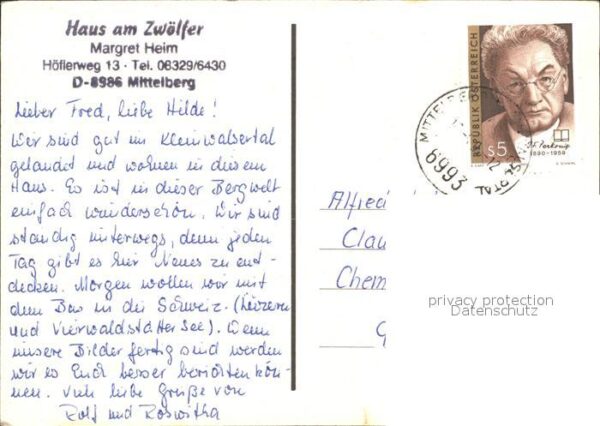 Haus am Zwölfer
Margret Heim
Höflerweg 13 · Tel. 06329/6430
D-8986 Mittelberg
Lieber Fred, liebe Hilde!
Wir sind gut im Kleinwalsertal
gelandet und wohnen in diesem
Haus. Es ist in dieser Bergwelt
einfach wunderschön. Wir sind
ständig unterwegs, denn jeden
Tag gibt es hier Neues zu ent-
decken. Morgen wollen wir mit
dem Bus in die Schweiz. (Luzern
und Vierwaldstätter See). Wenn
unsere Bilder fertig sind werden
wir es Euch besser berichten kön-
nen. Viele liebe Grüße von
Rolf und Roswitha
REPUBLIK ÖSTERREICH
s5
1890-1959
6993
Alfred
Clau
Chem
G
privacy protection
Datenschutz